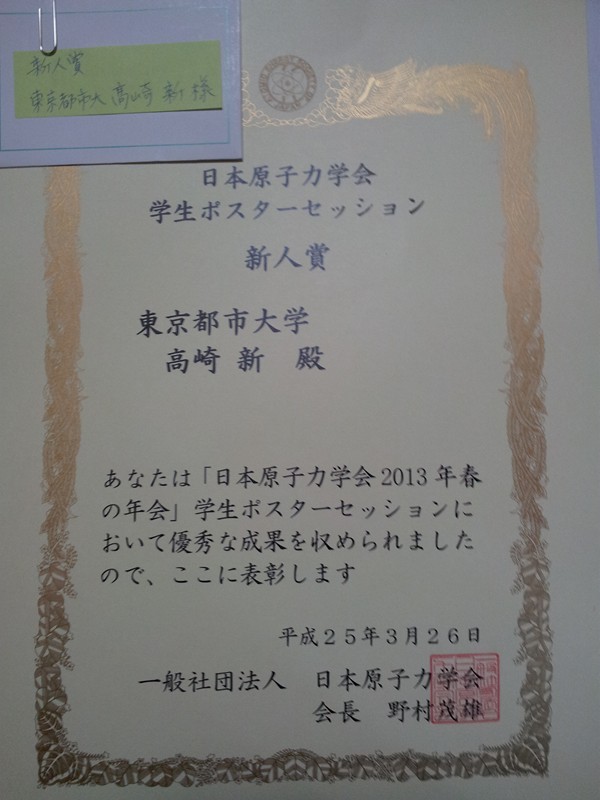 新人賞
東京都市大 高崎 新 様
日本原子力学会
学生ポスターセッション
新人賞
東京都市大学
高崎 新 殿
あなたは「日本原子力学会2013年春
の年会」学生ポスターセッションに
おいて優秀な成果を収められました
ので、ここに表彰します
平成25年3月26日
一般社団法人 日本原子力学会
会長 野村茂雄